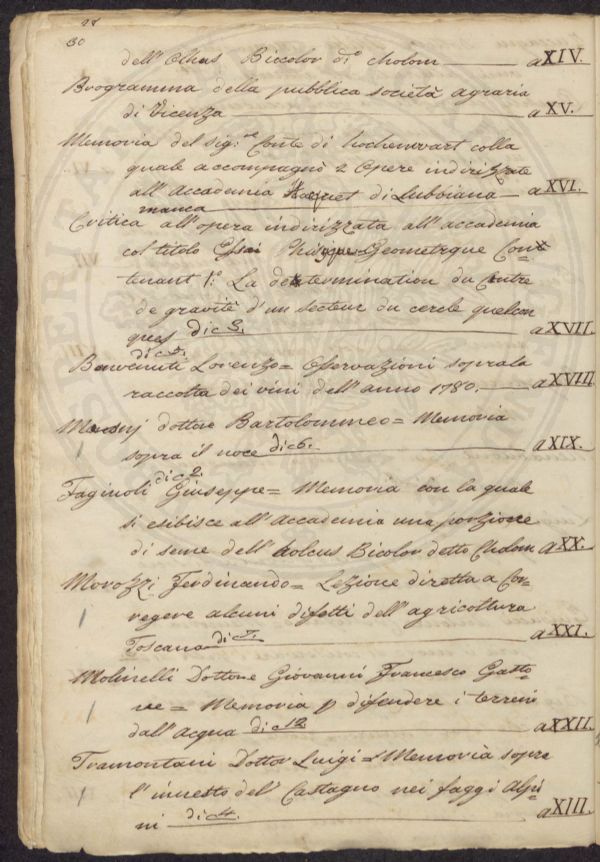 28
30
dell'Olkus Biccolor di° Cholom a XIV.
Programma della pubblica società agraria
di Vicenza a XV.
Memoria del sig.re Conte di hochenwart colla
quale accompagnò 2 Opere indirizzate
all'Accademia Haquet di Luboiana a XVI.
manca
Critica all'opera indirizzata all'accademia
col titolo Essai Geometrque Con=
tenant 1.° La determination du Centre
de gravitè d'un secteur du cercle quelcon
ques di c 3. a XVII.
di c 5.
Benvenuti Lorenzo = Osservazioni sopra la
raccolta dei vini dell'anno 1780. a XVIII
dottore Bartolommeo = Memoria
sopra il noce di c 6. a XIX.
di c 2.
Faginoli Giuseppe = Memoria con la quale
si esibisce all'Accademia una porzione
di seme dell'holcus Bicolor detto Cholom a XX.
Morozzi Ferdinando = Lezione diretta a Cor=
regere alcuni difetti dell'agricoltura
Toscana di c 7. a XXI.
Molinelli Dottore Giovanni Francesco Gasto=
ne = Memoria p difendere i terreni
dall'Acqua di c 12 a XXII.
Tramontani Dottor Luigi = Memoria sopra
l'innesto del Castagno nei faggi Alpi=
ni di c 4. a XIII.